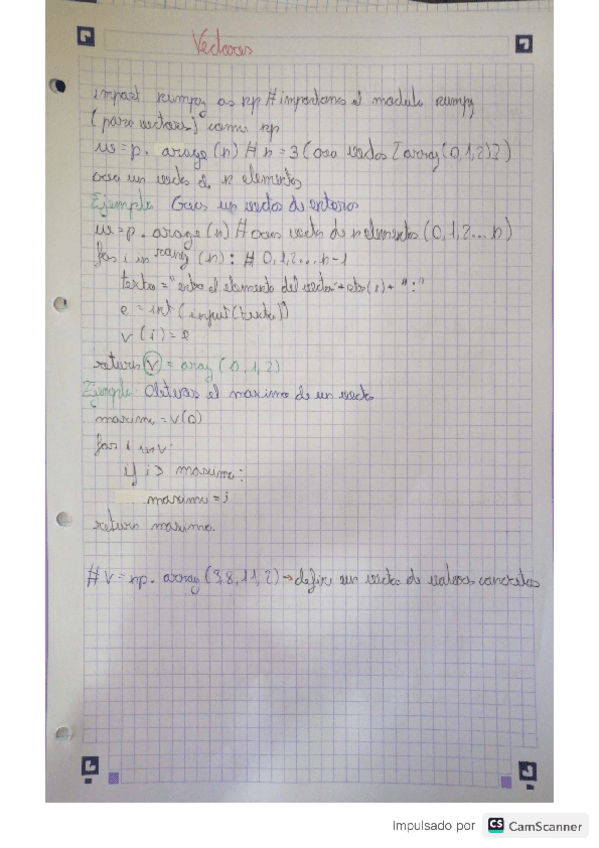 Vectores
import numpy as np # importamos el modulo numpy
(para vectores) como np
w=p. arage (n) # n=3 (crea vector [array(0,1,2)])
crea un vector de n elementos
Ejemplo: Crear un vector de enteros
w=p. arage (n) # crear vector de n elementos (0,1,2...n)
for i in rang (n): # 0,1,2...n-1
texto="entra el elemento del vector"+str(i)+":"
e=int(input(texto))
v(i)=e
return (v) = aray (0,1,2)
Ejemplo: Obtener el maximo de un vector
maximo=v(0)
for i in v:
if i> maximo:
maximo=i
return maximo.
# v=np. array (3,8,11,2)→define un vector de valores concretos
Impulsado por CS CamScanner